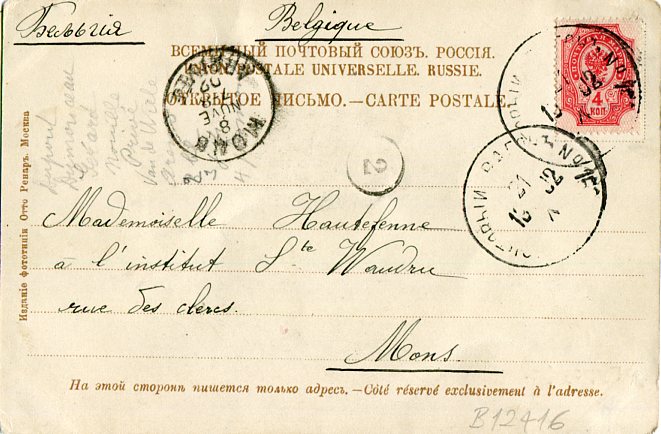 Бельгія Belgique
ВСЕМІРНЫЙ ПОЧТОВЫЙ СОЮЗЪ. РОССІЯ.
UNION POSTALE UNIVERSELLE. RUSSIE.
ОТКРЫТОЕ ПИСЬМО.—CARTE POSTALE.
4
КОП.
MONS
8
NOVE
02
2
ПОЧТОВЫЙ ВАГОНЪ №
21
13 02
X
Dupont
Изданіе фототипіи Отто Ренаръ. Москва
Mademoiselle Hautefenne
à l'institut Ste Waudru
rue des clercs.
Mons.
На этой сторонѣ пишется только адресъ.—Côté réservé exclusivement à l'adresse.
B12416